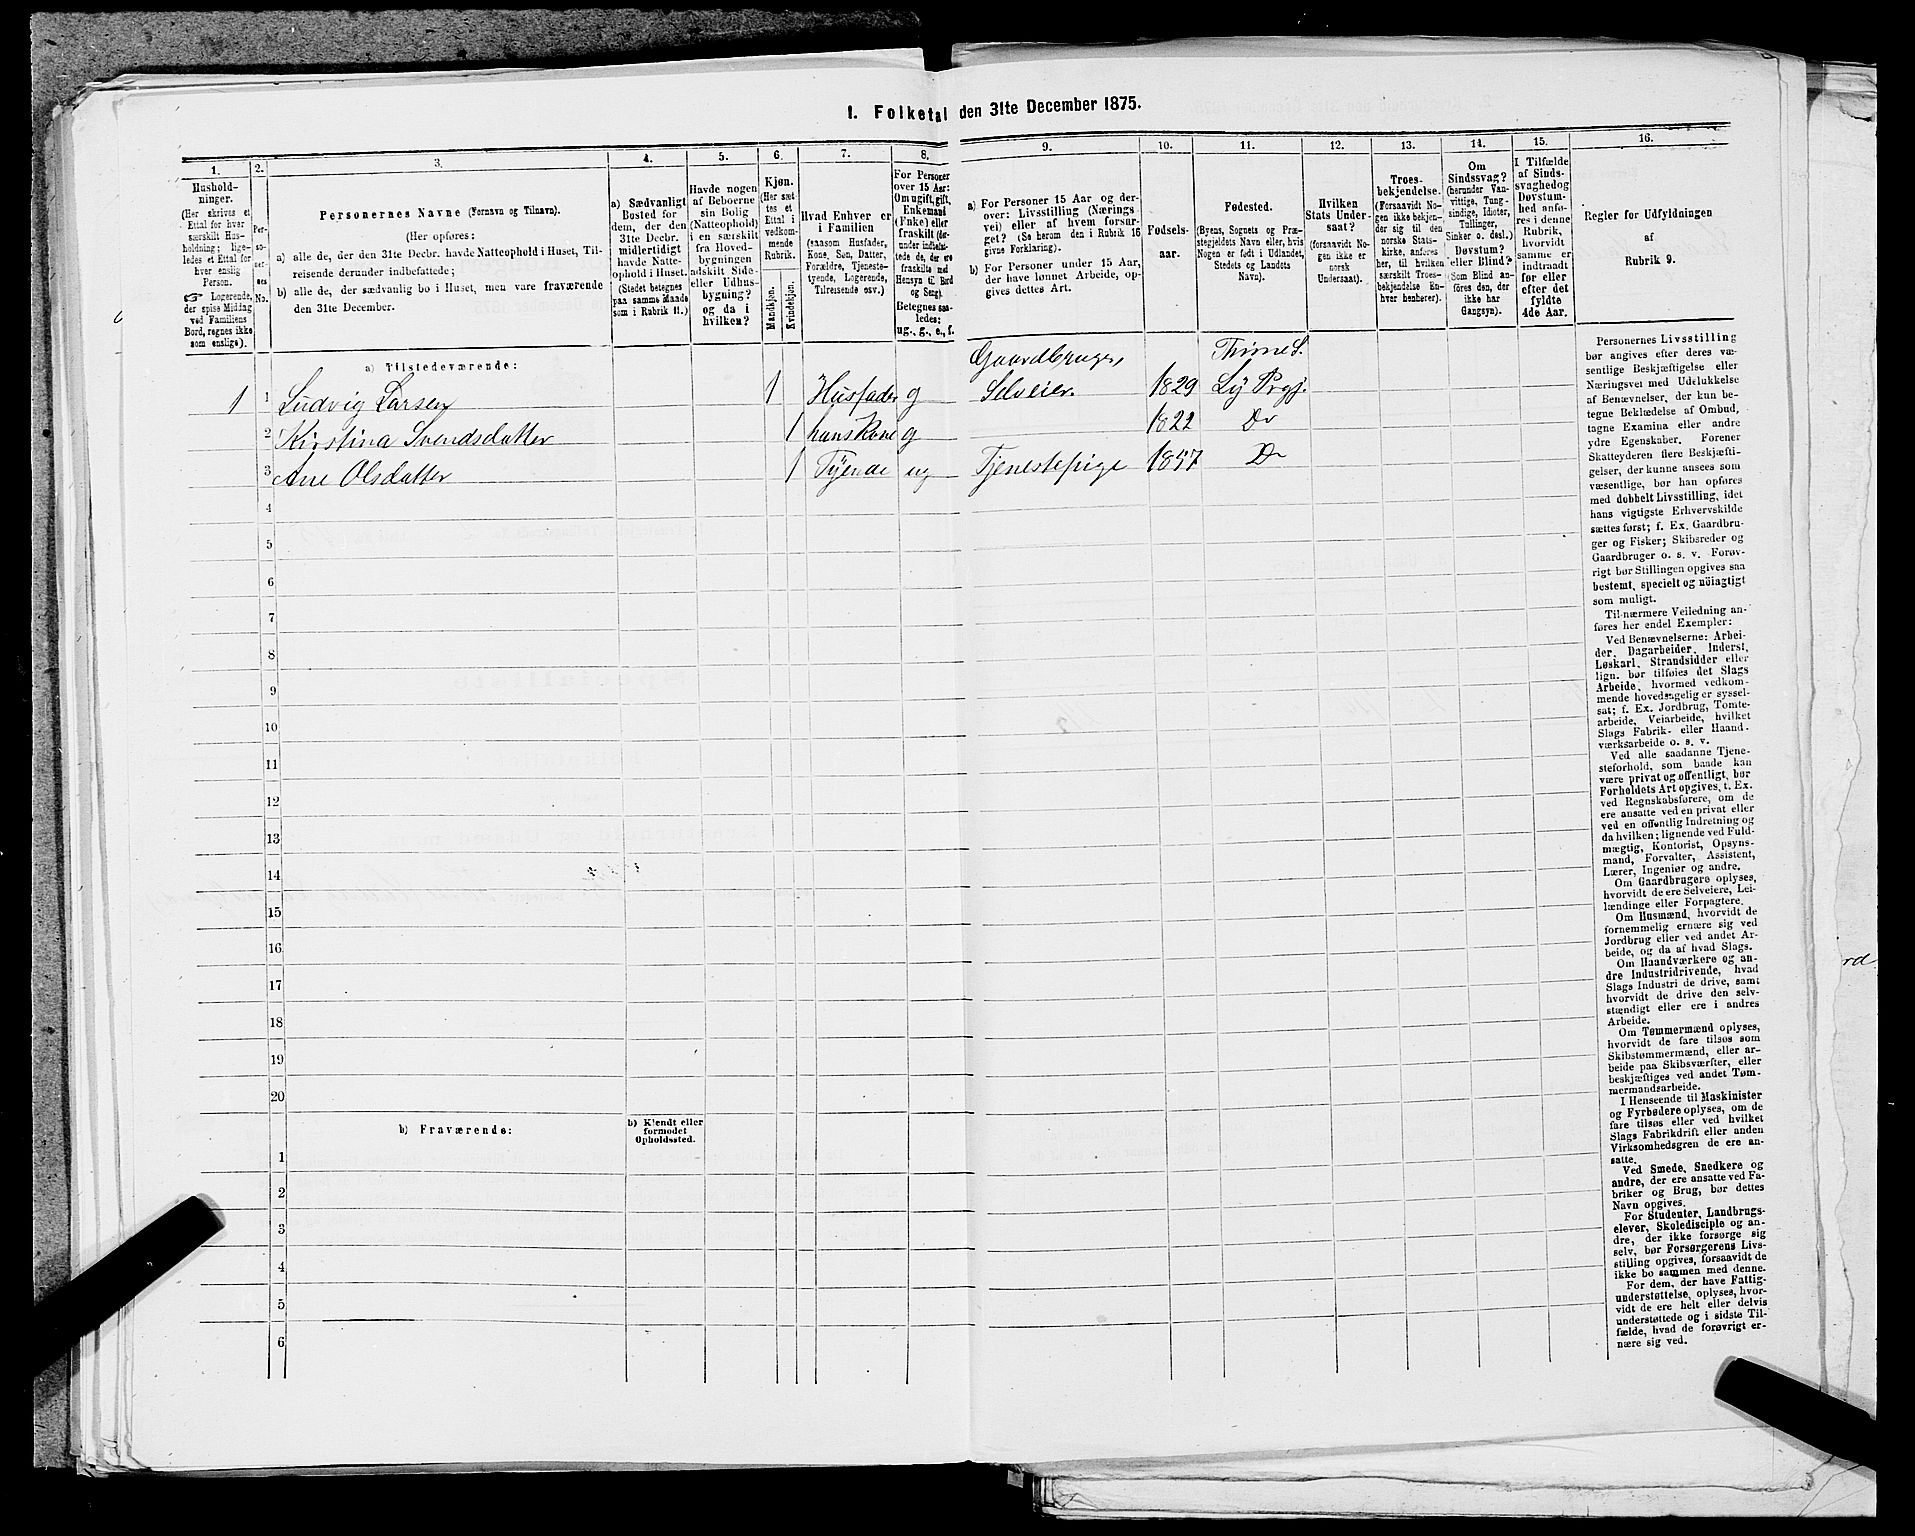 I. Folketal den 31te December 1875.
1. 2. 3. 4. 5. 6. 7. 8. 9. 10. 11. 12. 13. 14. 15. 16.
Hushold-
ninger.
(Her skrives et
Ettal for hver
særskilt Hus-
holdning; lige-
ledes et Ettal for
hver enslig
Person.
☞ Logerende,
der spise Middag
ved Familiens
Bord, regnes ikke
som enslige).
Per-
so-
ner-
nes
No.
Personernes Navne (Fornavn og Tilnavn).
(Her opføres:
a) alle de, der den 31te Decbr. havde Natteophold i Huset, Til-
reisende derunder indbefattede;
b) alle de, der sædvanlig bo i Huset, men vare fraværende
den 31te December.
a) Sædvanligt
Bosted for
dem, der den
31te Decbr.
midlertidigt
havde Natte-
ophold i Huset.
(Stedet betegnes
paa samme Maade
som i Rubrik 11.)
Havde nogen
af Beboerne
sin Bolig
(Natteophold)
i en særskilt
fra Hoved-
bygningen
adskilt Side-
eller Udhus-
bygning?
og da i
hvilken?
Kjøn.
(Her sæt-
tes et
Ettal i
vedkom-
mende
Rubrik.
Mandkjøn.
Kvindekjøn.
Hvad Enhver er
i Familien
(saasom Husfader,
Kone, Søn, Datter,
Forældre, Tjeneste-
tyende, Logerende,
Tilreisende osv.)
For Personer
over 15 Aar:
Om ugift, gift,
Enkemand
(Enke) eller
fraskilt (der-
under indbefat-
tede de, der ere
fraskilte med
Hensyn til Bord
og Seng).
Betegnes saa-
ledes:
ug., g., e., f.
a) For Personer 15 Aar og der-
over: Livsstilling (Nærings-
vei) eller af hvem forsør-
get? (Se herom den i Rubrik 16
givne Forklaring).
b) For Personer under 15 Aar,
der have lønnet Arbeide, op-
gives dettes Art.
Fødsels-
aar.
Fødested.
(Byens, Sognets og Præ-
stegjeldets Navn eller, hvis
Nogen er født i Udlandet,
Stedets og Landets
Navn).
Hvilken
Stats Under-
saat?
(forsaavidt No-
gen ikke er
norsk
Undersaat).
Troes-
bekjendelse.
(Forsaavidt No-
gen ikke bekjen-
der sig til den
norske Stats-
kirke, anføres
her, til hvilken
særskilt Troes-
bekjendelse En-
hver henhører).
Om
Sindssvag?
(herunder Van-
vittige, Tung-
sindige, Idioter,
Tullinger,
Sinker o. desl.)
Døvstum?
eller Blind?
(Som Blind an-
føres den, der
ikke har
Gangsyn).
I Tilfælde
af Sinds-
svaghed og
Døvstum-
hed anfø-
res i denne
Rubrik,
hvorvidt
samme er
indtraadt
før eller
efter det
fyldte
4de Aar.
Regler for Udfyldningen
af
Rubrik 9.
a) Tilstedeværende:
Gaardbruger, Thime S.
1 1 Ludvig Larsen 1 Husfader g Selveier. 1829 Ly Prgj.
2 Kirstina Svendsdatter 1 hans Kone g 1822 Do
3 Ane Olsdatter 1 Tyende ug Tjenestepige 1857 Do
4
5
6
7
8
9
10
11
12
13
14
15
16
17
18
19
20
b) Fraværende:
b) Kjendt eller
formodet
Opholdssted.
1
2
3
4
5
6
Personernes Livsstilling
bør angives efter deres væ-
sentlige Beskjæftigelse eller
Næringsvei med Udelukkelse
af Benævnelser, der kun be-
tegne Beklædelse af Ombud,
tagne Examina eller andre
ydre Egenskaber. Forener
Skatteyderen flere Beskjæfti-
gelser, der kunne ansees som
væsentlige, bør han opføres
med dobbelt Livsstilling, idet
hans vigtigste Erhvervskilde
sættes først; f. Ex. Gaardbru-
ger og Fisker; Skibsreder og
Gaardbruger o. s. v. Forøv-
rigt bør Stillingen opgives saa
bestemt, specielt og nöiagtigt
som muligt.
Til nærmere Veiledning an-
føres her endel Exempler:
Ved Benævnelserne: Arbei-
der, Dagarbeider, Inderst,
Løskarl, Strandsidder eller
lign. bør tilføies det Slags
Arbeide, hvormed vedkom-
mende hovedsagelig er syssel-
sat; f. Ex. Jordbrug, Tomte-
arbeide, Veiarbeide, hvilket
Slags Fabrik- eller Haand-
værksarbeide o. s. v.
Ved alle saadanne Tjene-
steforhold, som baade kan
være privat og offentligt, bør
Forholdets Art opgives, t. Ex.
ved Regnskabsførere, om de
ere ansatte ved en privat eller
ved en offentlig Indretning og
da hvilken; lignende ved Fuld-
mægtig, Kontorist, Opsyns-
mand, Forvalter, Assistent,
Lærer, Ingeniør og andre.
Om Gaardbrugere oplyses,
hvorvidt de ere Selveiere, Lei-
lændinge eller Forpagtere.
Om Husmænd, hvorvidt de
fornemmelig ernære sig ved
Jordbrug eller ved andet Ar-
beide, og da af hvad Slags.
Om Haandværkere og an-
dre Industridrivende, hvad
Slags Industri de drive, samt
hvorvidt de drive den selv-
stændigt eller ere i andres
Arbeide.
Om Tømmermænd oplyses,
hvorvidt de fare tilsøs som
Skibstømmermænd, eller ar-
beide paa Skibsværfter, eller
beskjæftiges ved andet Tøm-
mermandsarbeide.
I Henseende til Maskinister
og Fyrbødere oplyses, om de
fare tilsøs eller ved hvilket
Slags Fabrikdrift eller anden
Virksomhedsgren de ere an-
satte.
Ved Smede, Snedkere og
andre, der ere ansatte ved Fa-
briker og Brug, bør dettes
Navn opgives.
For Studenter, Landbrugs-
elever, Skoledisciple og an-
dre, der ikke forsørge sig
selv, bør Forsørgerens Livs-
stilling opgives, forsaavidt de
ikke bo sammen med denne.
For dem, der have Fattig-
understøttelse, oplyses, hvor-
vidt de ere helt eller delvis
understøttede og i sidste Til-
fælde, hvad de forøvrigt er-
nære sig ved.